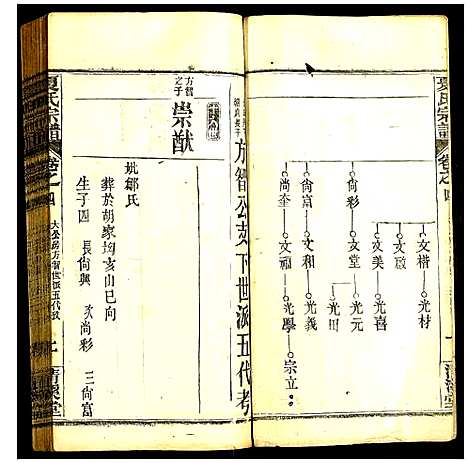 夏氏宗譜
卷之四
文楷 光材
文啟
文美 光喜
尚彩 文堂 光元
光田
尚富 文和 光義
尚奎 文福 光學 宗立
方智公支下世派五代考
方智之子
崇猷
妣鄒氏
葬於胡家坳亥山巳向
生子四 長尚興 次尚彩 三尚富
夏氏宗譜
卷之四
大公房方智世派五代考